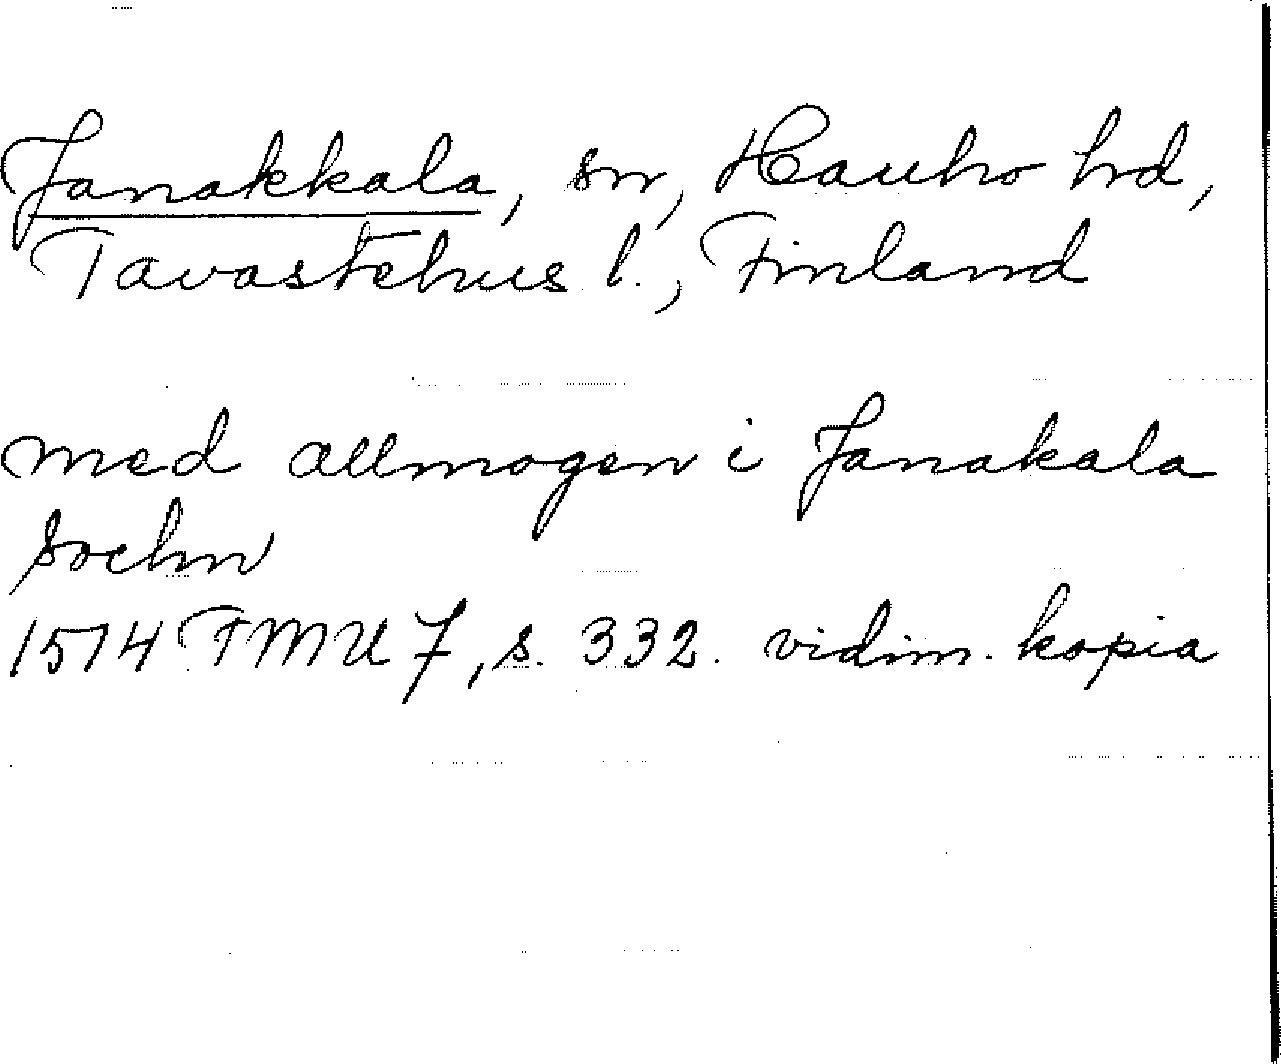 Janakkala, sn, Hauho hd,
Tavastehus l., Finland
med allmogen i Janakala
sochn
1514 FMU 7, s. 332. vidim. kopia